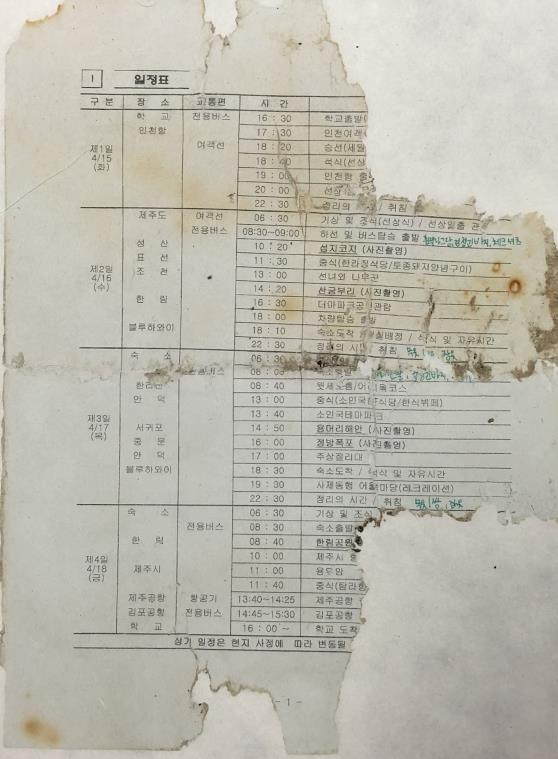 I 일정표
구 분 장 소 교통편 시 간
제1일 4/15 (화)
학 교 전용버스 16 : 30 학교출발
인천항 17 : 30 인천여객
여객선 18 : 20 승선(세월
18 : 40 석식(선상
19 : 00 인천항
20 : 00 선상
22 : 30 정리의 / 취침
제2일 4/16 (수)
제주도 여객선 06 : 30 기상 및 조식(선상식) / 선상일출 관
전용버스 08:30~09:00 하선 및 버스탑승 출발
성 산 10 : 20 섭지코지 (사진촬영)
표 선 11 : 30 중식(한라정식당/토종돼지양념구이)
조 천 13 : 00 선녀와 나무꾼
14 : 20 산굼부리 (사진촬영)
한 림 16 : 30 더마파크공연관람
18 : 00 차량탑승 출발
블루하와이 18 : 10 숙소도착 / 실배정 / 석식 및 자유시간
22 : 30 정리의 시간 / 취침
제3일 4/17 (목)
숙 소 06 : 30
08 : 00 숙소출발
한라산 08 : 40 윗세오름/어리목코스
안 덕 13 : 00 중식(소인국 식당/한식뷔페)
13 : 40 소인국테마파크
서귀포 14 : 50 용머리해안 (사진촬영)
중 문 16 : 00 정방폭포 (사진촬영)
안 덕 17 : 00 주상절리대
블루하와이 18 : 30 숙소도착 / 석식 및 자유시간
19 : 30 사제동행 어울 마당(레크레이션)
22 : 30 정리의 시간 / 취침
제4일 4/18 (금)
숙 소 06 : 30 기상 및 조식
전용버스 08 : 30 숙소출발
한 림 08 : 40 한림공원
10 : 00 제주시
제주시 11 : 00 용두암
11 : 40 중식(탐라
제주공항 항공기 13:40~14:25 제주공항
김포공항 전용버스 14:45~15:30 김포공항
학 교 16 : 00 ~ 학교 도착
상기 일정은 현지 사정에 따라 변동될
- 1 -